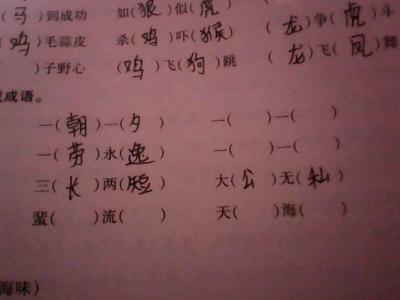 (马)到成功 如(狼)似(虎)
(鸡)毛蒜皮 杀(鸡)吓(猴) (龙)争(虎)斗
)子野心 (鸡)飞(狗)跳 (龙)飞(凤)舞
成语。
一(朝)一(夕) 一( )一( )
一(劳)永(逸) 一( )一( )
三(长)两(短) 大(公)无(私)
蜚( )流( ) 天( )海( )
海味)